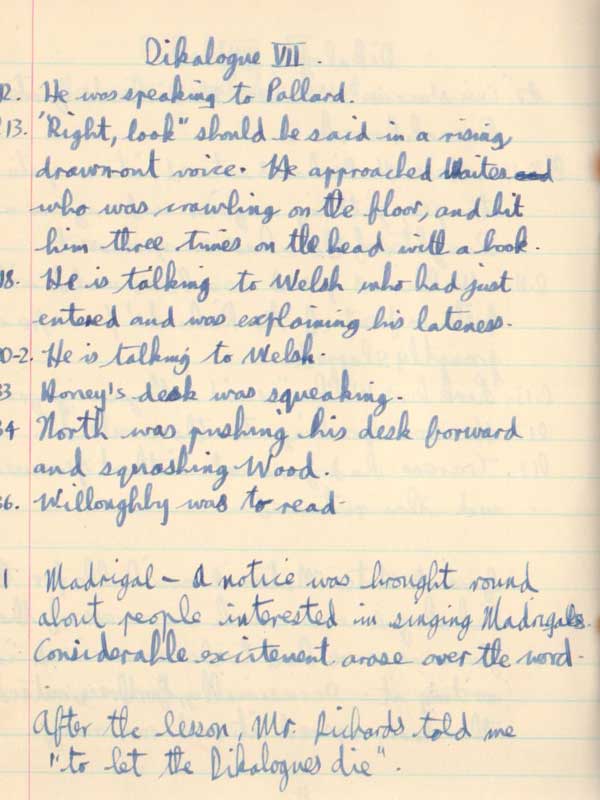 Dikalogue VII.
2. He was speaking to Pallard.
13. "Right, look" should be said in a rising
drawn-out voice. He approached Waites and
who was crawling on the floor, and hit
him three times on the head with a book.
18. He is talking to Welsh who had just
entered and was explaining his lateness.
0-2. He is talking to Welsh.
33 Honey's desk was squeaking.
34 North was pushing his desk forward
and squashing Wood.
36. Willoughby was to read
1 Madrigal - A notice was brought round
about people interested in singing Madrigals.
Considerable excitement arose over the word.
After the lesson, Mr. Richards told me
"to let the Dikalogues die".